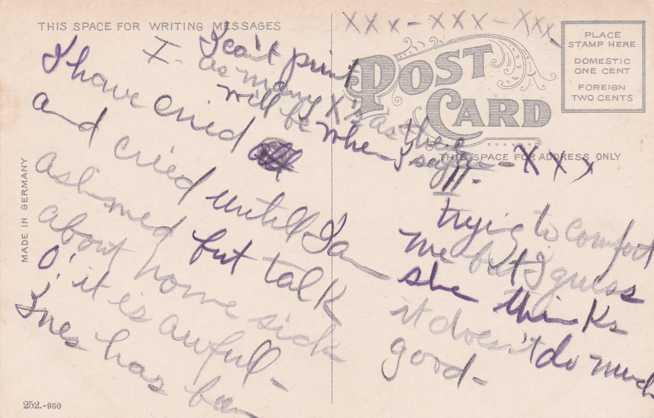 THIS SPACE FOR WRITING MESSAGES
POST
CARD
PLACE
STAMP HERE
DOMESTIC
ONE CENT
FOREIGN
TWO CENTS
THIS SPACE FOR ADDRESS ONLY
MADE IN GERMANY
I have cried
and cried until I am
ashamed but talk
about home sick
O! it is awful-
Ines has been
trying to comfort
me but I guess
she thinks
it doesn't do much
good-
I can't print
as many X's as there
will be when I say
XXX-XXX-XXX-
-XXX
252.-950